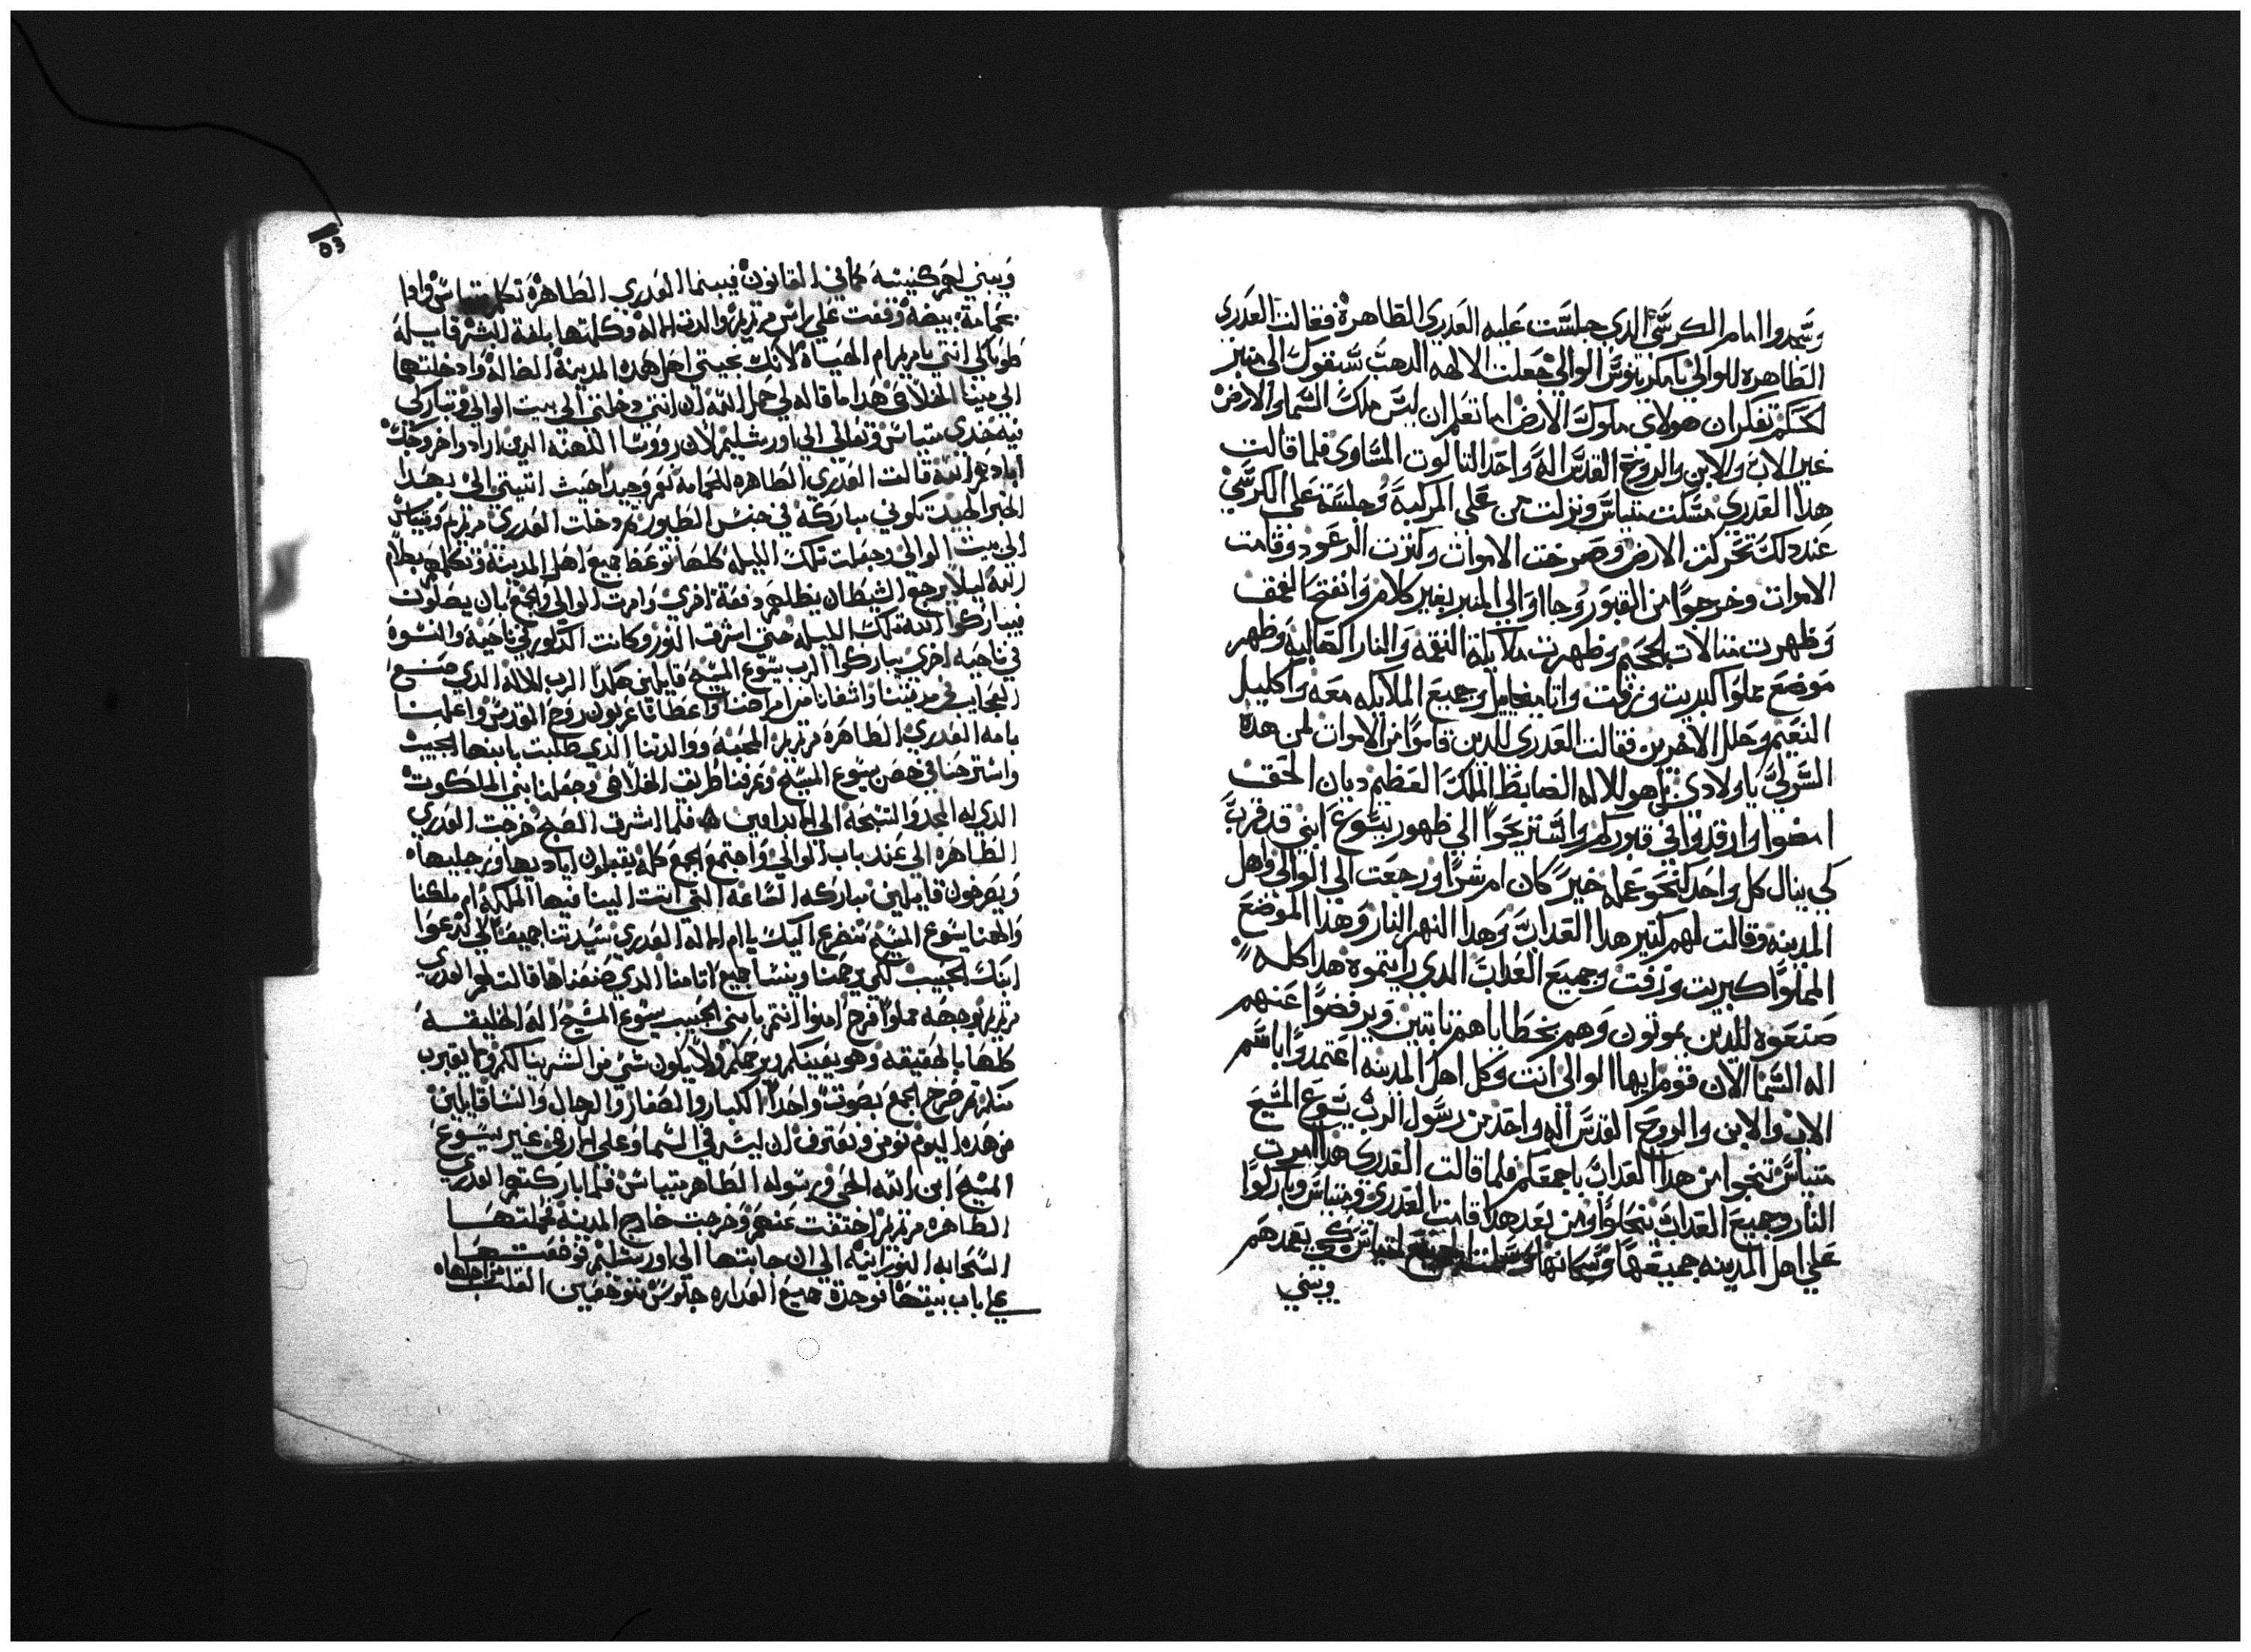 وسجدوا امام الكرسي الدي جلست عليه العدري الطاهرة فقالت العدري
الطاهره للوالي يا الوالي جعلت الالهه الدهب الى منبر
تفكر ان ملوك الارض اما تعلم ان ليس ملك السما والارض
غير الاب والابن والروح القدس اله واحد التالوت المساوى فلما قالت
هدا العدري مسكت متياس ونزلت من على المركبة وجلسة على الكرسي
عند دلك تحركت الارض وصرخت الاموات وكترت الرعود وقامت
الاموات وخرجوا من القبور وجاوا الي المنبر بغير كلام وانفتح
وظهرت الجحيم وظهرت ملايكة النقمه والنار وظهر
موضع مملوا كبريت وزفت واتا ميخاييل وجميع الملايكه معه واكليل
النعيم وحلل الاخرين فقالت العدرى للدين قاموا من الاموات لمن هده
يا اولادي هو للاله الضابط الملك العظيم ديان الحق
امضوا وارقدوا في قبوركم واستريحوا الي ظهور يسوع ابني قد قرب
كي ينال كل واحد كنحو عمله خير كان ام شرا ورجعت الي الوالي واهل
المدينه وقالت لهم كتير هدا العداب وهدا النهر النار وهدا الموضع
المملوا كبريت وزفت وجميع العداب الدي رايتموه هدا كله
صنعوه للدين يموتون وهم بخطاياهم تابتين ويرفضوا عنهم
اله السما الان قوم ايها الوالي انت وكل اهل المدينه اعتمدوا باسم
الاب والابن والروح القدس اله واحد من رسول الرب يسوع المسيح
متياس تنجوا من هدا العداب باجمعكم فلما قالت العدري هدا امرت
النار وجميع العداب ومن بعد هدا قامت العدري ومتياس وباركوا
على اهل المدينه جميعها وسكانها كي يعمدهم
ويبني
53
ويبني لهم كنيسة كما في القانون فبينما العدري الطاهرة تكلم متياس وادا
بحمامة بيضة وقفت علي راس مرتمريم والدت الاله وكلمتها بلغة البشر قايلة
طوباكي انتي يا مريم ام الحياة لانك نجيتي اهل هده المدينة الضالة وادخلتيها
الي مينا الخلاص هدا ما قاله لي حمل الله ان انتي دخلتي الي بيت الوالي وتباركي
فيه خدي متياس وتعالي الي اورشليم لان رووسا الكهنه الدين ارادوا خروجك
قالت العدري الطاهره للحمامة نعم وجيدا حيث اتيتي الي بهدا
الخبر الجيد تكوني مباركه في جنس الطيور ودخلت العدري مرتمريم ومتياس
الي بيت الوالي وجعلت تلك الليله كلها توعظ جميع اهل المدينة وتكلمهم بكلام
الله ليلا يرجع الشيطان يظلهم دفعة اخري وامرت الوالي والجمع بان يصلون
فباركوا الله تلك الليله حتي اشرق النور وكانت الدكور في ناحية والنسوة
في ناحيه اخري يباركوا الرب يسوع المسيح قايلين هكدا الرب الاله الدي صنع
العجايب في مدينتنا واشفانا من امراضنا واعطانا عربون روح القدس
بامه العدري الطاهرة مرتمريم المحبه ووالدتنا الدي طلبت بابنها الحبيب
واسترحنا في حصن يسوع المسيح وعرفنا طريق الخلاص وجعلنا بني الملكوت
الدي له المجد والتسبحة الي الابد امين فلما اشرق الصبح خرجت العدري
الطاهره الي عند باب الوالي واجتمع الجمع كله يقبلون اياديها ورجليها
ويصرخون قايلين مباركه الساعة التي اتت الينا فيها الملكة ام ملكنا
والهنا يسوع المسيح نتضرع اليك يا ام الاله العدري سيدتنا جميعا لكي تدعوا
ابنك الحبيب لكي يرحمنا وينسا جميع اتامنا الدي صنعناها قالت لهم العدري
مرتمريم بوجهه مملوا فرح امنوا انتم بابني الحبيب يسوع المسيح اله الخليقة
كلها بالحقيقه وهو يعينكم ويرحمكم ولا يكون شي من الشر ينالكم ولا يقرب
منكم تم صرخ الجمع بصوت واحد الكبار والصغار والرجال والنسا قايلين
من هده اليوم نومن ونعترف ان ليس في السما وعلي الارض غير يسوع
المسيح ابن الله الحي ورسوله الطاهر متياس فلما باركتهم العدري
الطاهره مرتمريم اختفت عنهم وخرجت خارج المدينة فحملتها
السحابه النورانيه الي ان جابتها الي اورشليم فوضعتها
علي باب بيتها فوجدة جميع العداره جلوس متوجعين القلب من اجلها